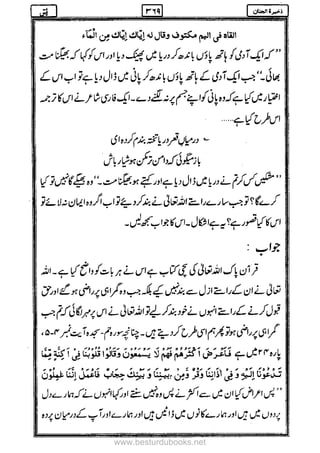 ذخیرة الجنان
۳۶۹
القاه فی الیم مکتوف وقال له ایاك ایاك من الماء
"ایک آدمی کو ہاتھ پاؤں باندھ کر دریا میں پھینک دیا اور اس کو کہا کہ بھیگنا مت
بھائی۔" جب ایک آدمی کے ہاتھ پاؤں باندھ کر پانی میں ڈال دیا ہے تو اب اس کے
اختیار میں کیا ہے کہ وہ پانی کو اپنے جسم پر نہ لگنے دے۔ ایک فارسی شاعر نے اس کا ترجمہ
اس طرح کیا ہے......
درمیانِ قعر دریا تختہ بندم کردہ ای
باز میگوئی کہ دامن تر مکن ہوشیار باش
مسکین کس کرم نے دریا میں ڈال دیا ہے اور کہتے ہو بھیگنا مت۔" وہ بھیگے گا نہیں تو کیا
کرے گا؟ جب تو سارے راستے اللہ تعالیٰ نے بند کر دیئے تو اب اگر وہ ایمان نہ لائے تو
اس کا کیا قصور ہے؟ یہ ہے اشکال۔ اس کا جواب سمجھ لیں۔
جواب :
قرآن پاک اللہ تعالیٰ کی سچی کتاب ہے اس نے ہر بات کو واضح کیا ہے۔ اللہ
تعالیٰ نے ان کے راستے ازل سے بند نہیں کیے بلکہ جب وہ گمراہی پر راضی ہو گئے اور حق
قبول کرنے کے راستے انہوں نے خود بند کر لیے تو اللہ تعالیٰ نے اس پر مہر لگائی کہ جب تم
گمراہی پر راضی ہو تو پھر ہم اسی طرح کر دیتے ہیں۔ چنانچہ سورۃ حم سجدہ آیت نمبر ۴-۵،
پارہ ۲۴ میں ہے فَاَعْرَضَ اَكْثَرُهُمْ فَهُمْ لَا يَسْمَعُوْنَ وَقَالُوْا قُلُوْبُنَا فِيْ اَكِنَّةٍ مِّمَّا
تَدْعُوْنَآ اِلَيْهِ وَفِيْ اٰذَانِنَا وَقْرٌ وَّمِنْ بَيْنِنَا وَبَيْنِكَ حِجَابٌ فَاعْمَلْ اِنَّنَا عٰمِلُوْنَ
"پس اعراض کیا ان میں سے اکثر نے پس وہ نہیں سنتے اور کہا انہوں نے کہ ہمارے دل
پردوں میں ہیں اور ہمارے کانوں میں ڈاٹیں ہیں اور ہمارے اور آپ کے درمیان پردہ
www.besturdubooks.net